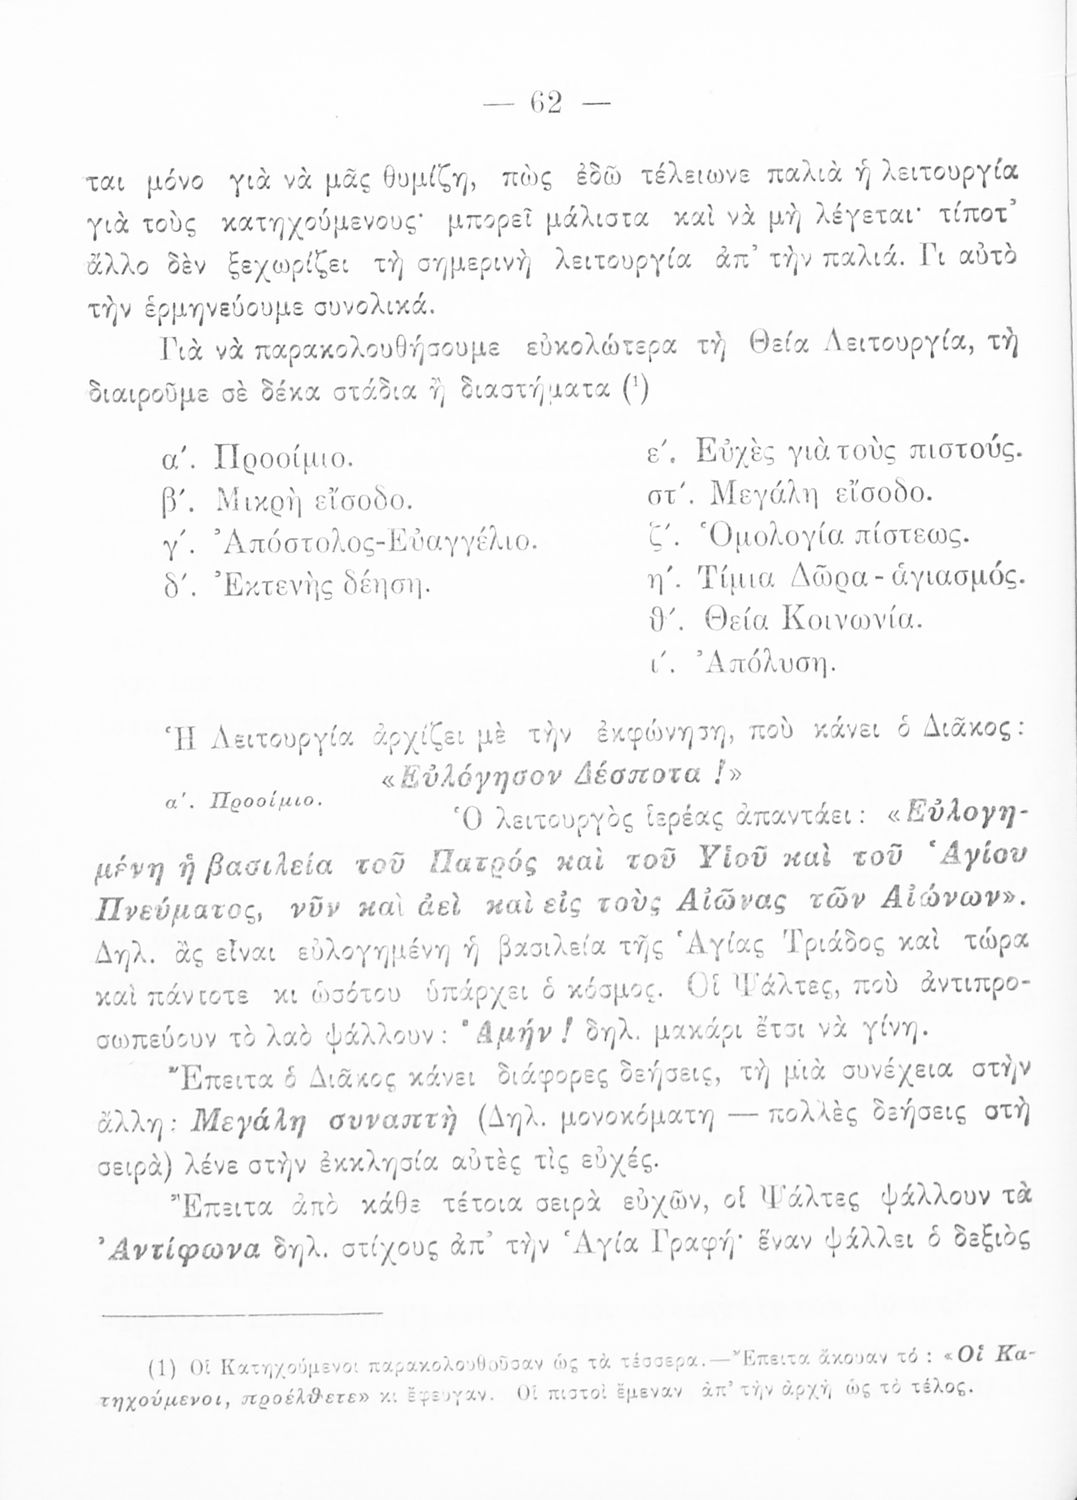 — 62 —
ται μόνο γιὰ νὰ μᾶς θυμίζῃ, πὼς ἐδῶ τέλειωνε παλιὰ ἡ λειτουργία
γιὰ τοὺς κατηχούμενους· μπορεῖ μάλιστα καὶ νὰ μὴ λέγεται· τίποτ'
ἄλλο δὲν ξεχωρίζει τὴ σημερινὴ λειτουργία ἀπ' τὴν παλιά. Γι αὐτὸ
τὴν ἑρμηνεύουμε συνολικά.
Γιὰ νὰ παρακολουθήσουμε εὐκολώτερα τὴ Θεία Λειτουργία, τὴ
διαιροῦμε σὲ δέκα στάδια ἢ διαστήματα (¹)
α'. Προοίμιο.
β'. Μικρὴ εἴσοδο.
γ'. Ἀπόστολος-Εὐαγγέλιο.
δ'. Ἐκτενὴς δέηση.
ε'. Εὐχὲς γιὰ τοὺς πιστούς.
στ'. Μεγάλη εἴσοδο.
ζ'. Ὁμολογία πίστεως.
η'. Τίμια Δῶρα - ἁγιασμός.
θ'. Θεία Κοινωνία.
ι'. Ἀπόλυση.
Ἡ Λειτουργία ἀρχίζει μὲ τὴν ἐκφώνηση, ποὺ κάνει ὁ Διᾶκος:
«Εὐλόγησον Δέσποτα !»
α'. Προοίμιο.
Ὁ λειτουργὸς ἱερέας ἀπαντάει: «Εὐλογη-
μένη ἡ βασιλεία τοῦ Πατρός καὶ τοῦ Υἱοῦ καὶ τοῦ Ἁγίου
Πνεύματος, νῦν καὶ ἀεὶ καὶ εἰς τοὺς Αἰῶνας τῶν Αἰώνων».
Δηλ. ἂς εἶναι εὐλογημένη ἡ βασιλεία τῆς Ἁγίας Τριάδος καὶ τώρα
καὶ πάντοτε κι ὡσότου ὑπάρχει ὁ κόσμος. Οἱ Ψάλτες, ποὺ ἀντιπρο-
σωπεύουν τὸ λαὸ ψάλλουν: Ἀμήν ! δηλ. μακάρι ἔτσι νὰ γίνῃ.
Ἔπειτα ὁ Διᾶκος κάνει διάφορες δεήσεις, τὴ μιὰ συνέχεια στὴν
ἄλλη: Μεγάλη συναπτὴ (Δηλ. μονοκόματη — πολλὲς δεήσεις στὴ
σειρὰ) λένε στὴν ἐκκλησία αὐτὲς τὶς εὐχές.
Ἔπειτα ἀπὸ κάθε τέτοια σειρὰ εὐχῶν, οἱ Ψάλτες ψάλλουν τὰ
Ἀντίφωνα δηλ. στίχους ἀπ' τὴν Ἁγία Γραφή· ἕναν ψάλλει ὁ δεξιὸς
(1) Οἱ Κατηχούμενοι παρακολουθοῦσαν ὡς τὰ τέσσερα.—Ἔπειτα ἄκουαν τό : «Οἱ Κα-
τηχούμενοι, προέλθετε» κι ἔφευγαν. Οἱ πιστοὶ ἔμεναν ἀπ' τὴν ἀρχὴ ὡς τὸ τέλος.